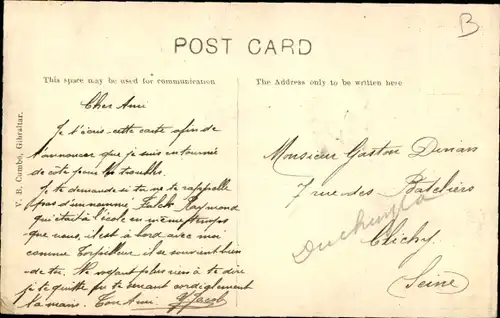 B
POST CARD
This space may be used for communication
The Address only to be written here
V. B. Cumbo, Gibraltar.
Cher Ami
Je t'écris cette carte afin de
t'annoncer que je suis en tournée
de côte pour les troubles.
Je te demande si tu ne te rappelle
pas d'un nommé Falck Raymond
qui était à l'école en même temps
que nous, il est à bord avec moi
comme Torpilleur il se souvient bien
de toi. Ne voyant plus rien à te dire
je te quitte en te serrant cordialement
la main. Ton Ami Jacob
Monsieur Gaston Dinan
7 rue des Bateliers
Clichy
Seine